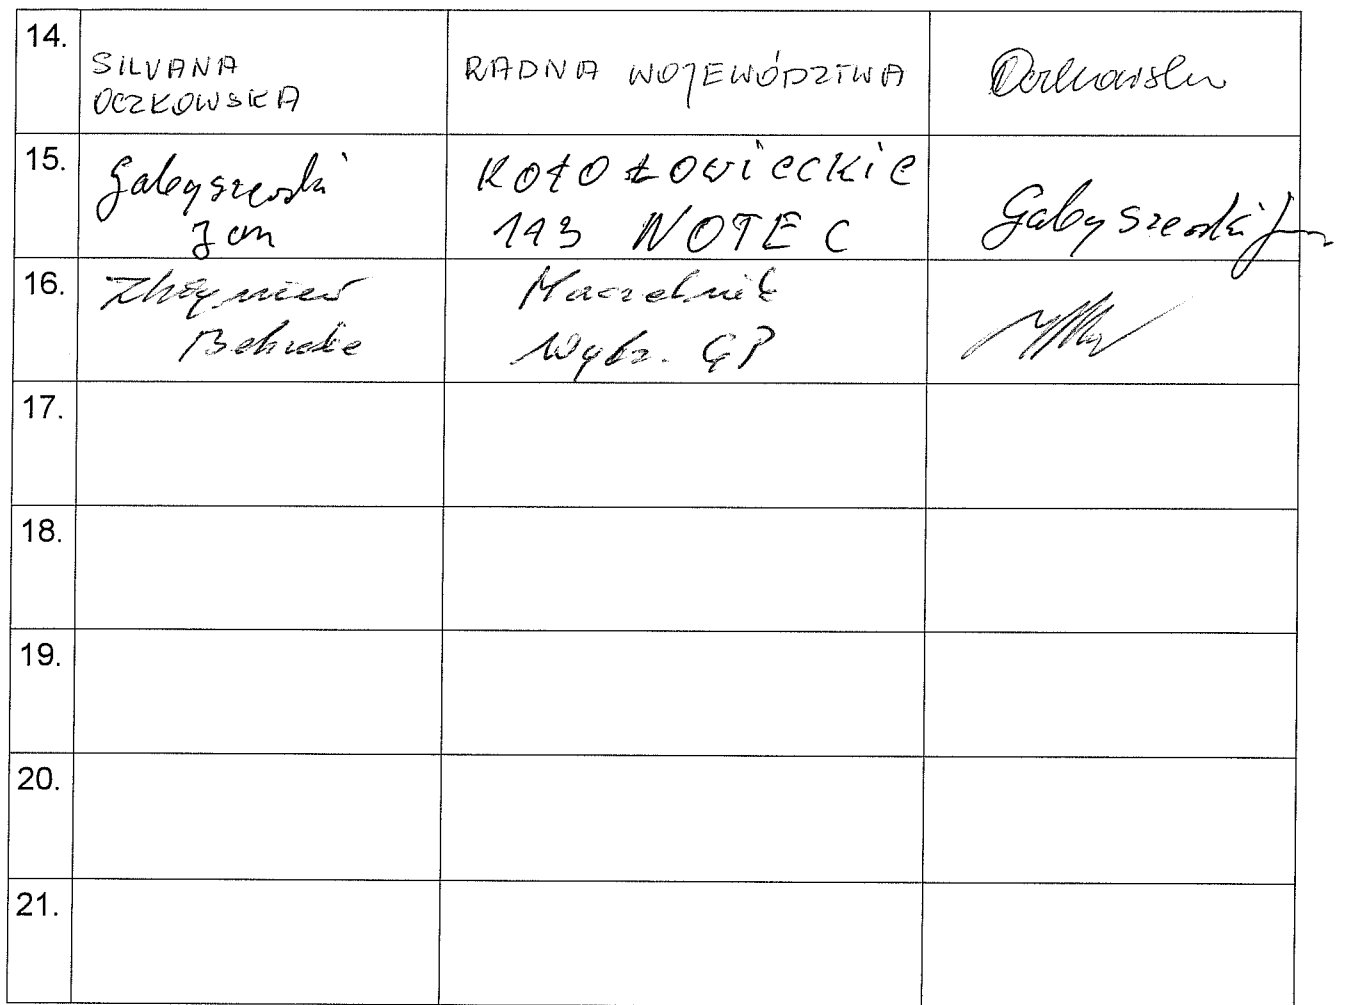 14.
SILVANA
OCZKOWSKA
RADNA WOJEWÓDZTWA
15.
Gabyszewski
Jan
KOŁO ŁOWIECKIE
143 NOTEC
Gabyszewski Jan
16.
Zbigniew
Naczelnik
Wybr. GP
17.
18.
19.
20.
21.